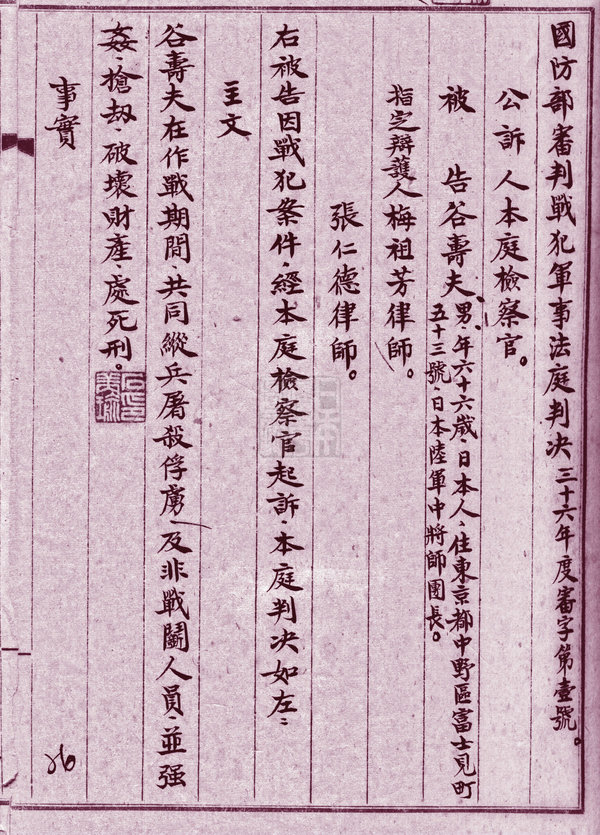 國防部審判戰犯軍事法庭判決 三十六年度審字第壹號。
公訴人 本庭檢察官。
被 告 谷壽夫、男、年六十六歲、日本人、住東京都中野區富士見町
五十三號、日本陸軍中將師團長。
指定辯護人 梅祖芳律師。
張仁德律師。
右被告因戰犯案件、經本庭檢察官起訴、本庭判決如左：
主文
谷壽夫在作戰期間、共同縱兵屠殺俘虜、及非戰鬭人員、並强
姦、搶劫、破壞財產、處死刑。
事實
26